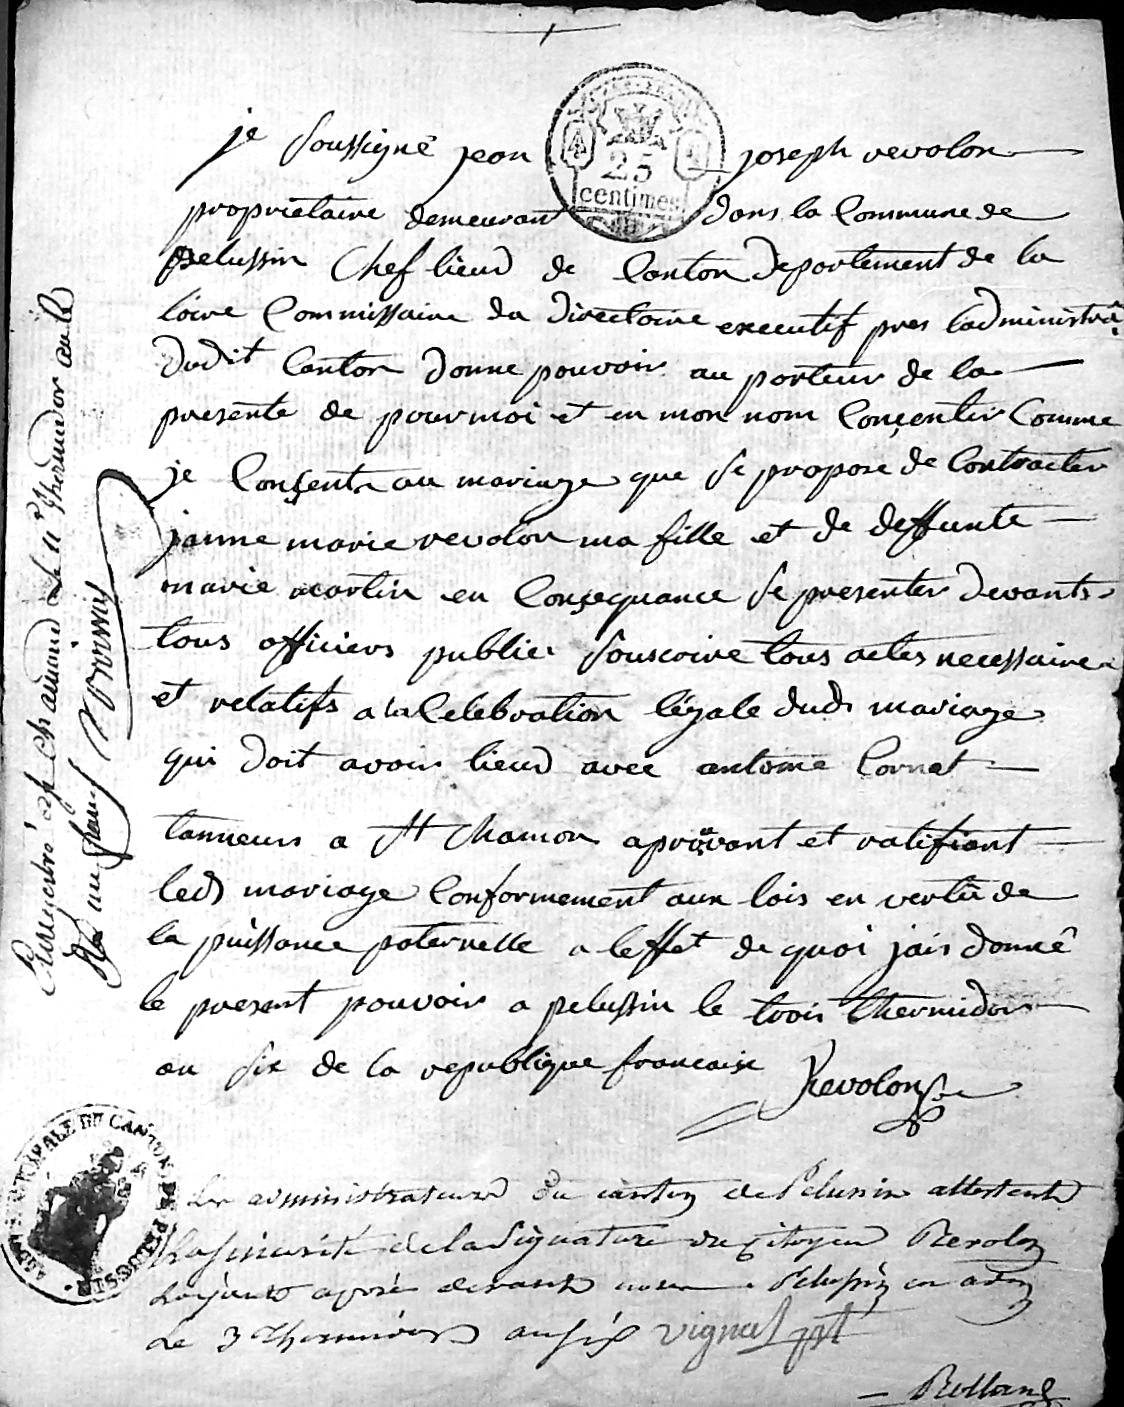 25
centimes
je soussigné jean joseph revolon
proprietaire demeurant dans la Commune de
pelussin Chef lieud de Canton departement de la
loire Commissaire du directoire executif pres ladministrâ.
dudit Canton donne pouvoir au porteur de la
presente de pour moi et en mon nom Conçentir Comme
je Conçent au mariage que se propose de Contracter
janne marie revolon ma fille et de deffunte
marie martin en Conçequance se presenter devants
tous officiers publics souscrire tous actes necessaires
et relatifs a la Celebration légale dud. mariage
qui doit avoir lieud avec antoine Cornet
tanneurs a St Chamon aprouvant et ratifiant
led mariage Conformement aux lois en vertû de
la puissance paternelle a leffet de quoi jais donné
le present pouvoir a pelussin le trois thermidor
an six de la republique francaise Revolon
ADM MUNICIPALE DU CANTON DE PELUSSIN
Les administrateurs du canton de Pelussin attestent
la sincerité de la Signature du Citoyen Revolon
aposé devant nous Pelussin en adon
Le 3 Thermidor an six vignal prt
Rolland
Enregistré à St Chamond le 11 thermidor an 6
un franc